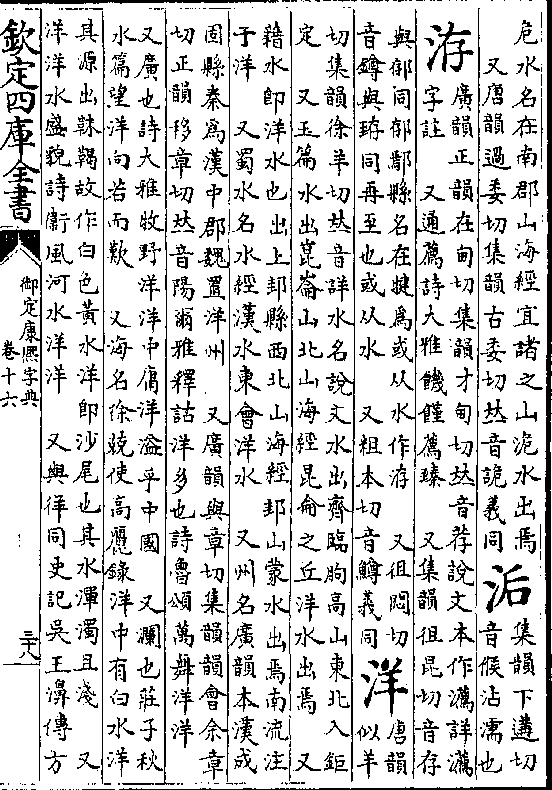 危水名在南郡山海經宜諸之山洈水出焉
又唐韻過委切集韻古委切𠀤音詭義同
洉
集韻下遘切
音候沾濡也
洊
廣韻正韻在甸切集韻才甸切𠀤音荐說文本作瀳詳瀳
字註 又通薦詩大雅饑饉薦臻 又集韻徂昆切音存
與郁同郁鄢縣名在犍爲或从水作洊 又徂悶切
音鐏與拵同再至也或从水 又粗本切音鱒義同
洋
唐韻
似羊
切集韻徐羊切𠀤音詳水名說文水出齊臨朐高山東北入鉅
定 又玉篇水出崑崙山北山海經昆侖之丘洋水出焉 又
藉水卽洋水也出上邽縣西北山海經邽山蒙水出焉南流注
于洋 又蜀水名水經漢水東會洋水 又州名廣韻本漢成
固縣秦爲漢中郡魏置洋州 又廣韻與章切集韻韻會余章
切正韻移章切𠀤音陽爾雅釋詁洋多也詩魯頌萬舞洋洋
又廣也詩大雅牧野洋洋中庸洋溢乎中國 又瀾也莊子秋
水篇望洋向若而歎 又海名徐兢使高麗錄洋中有白水洋
其源出靺鞨故作白色黃水洋卽沙尾也其水渾濁且淺 又
洋洋水盛貌詩衞風河水洋洋 又與徉同史記吳王濞傳方
欽定四庫全書
御定康熙字典
卷十六
三十八